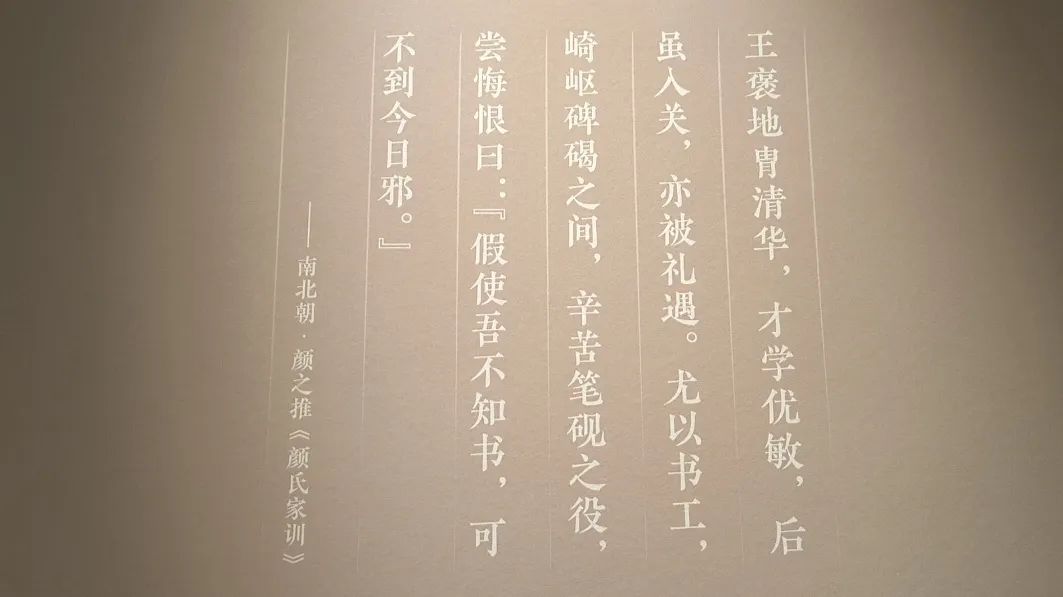 王褒地胄清华，才学优敏，后
虽入关，亦被礼遇。尤以书工，
崎岖碑碣之间，辛苦笔砚之役，
尝悔恨曰：『假使吾不知书，可
不到今日邪。』
——南北朝·颜之推《颜氏家训》